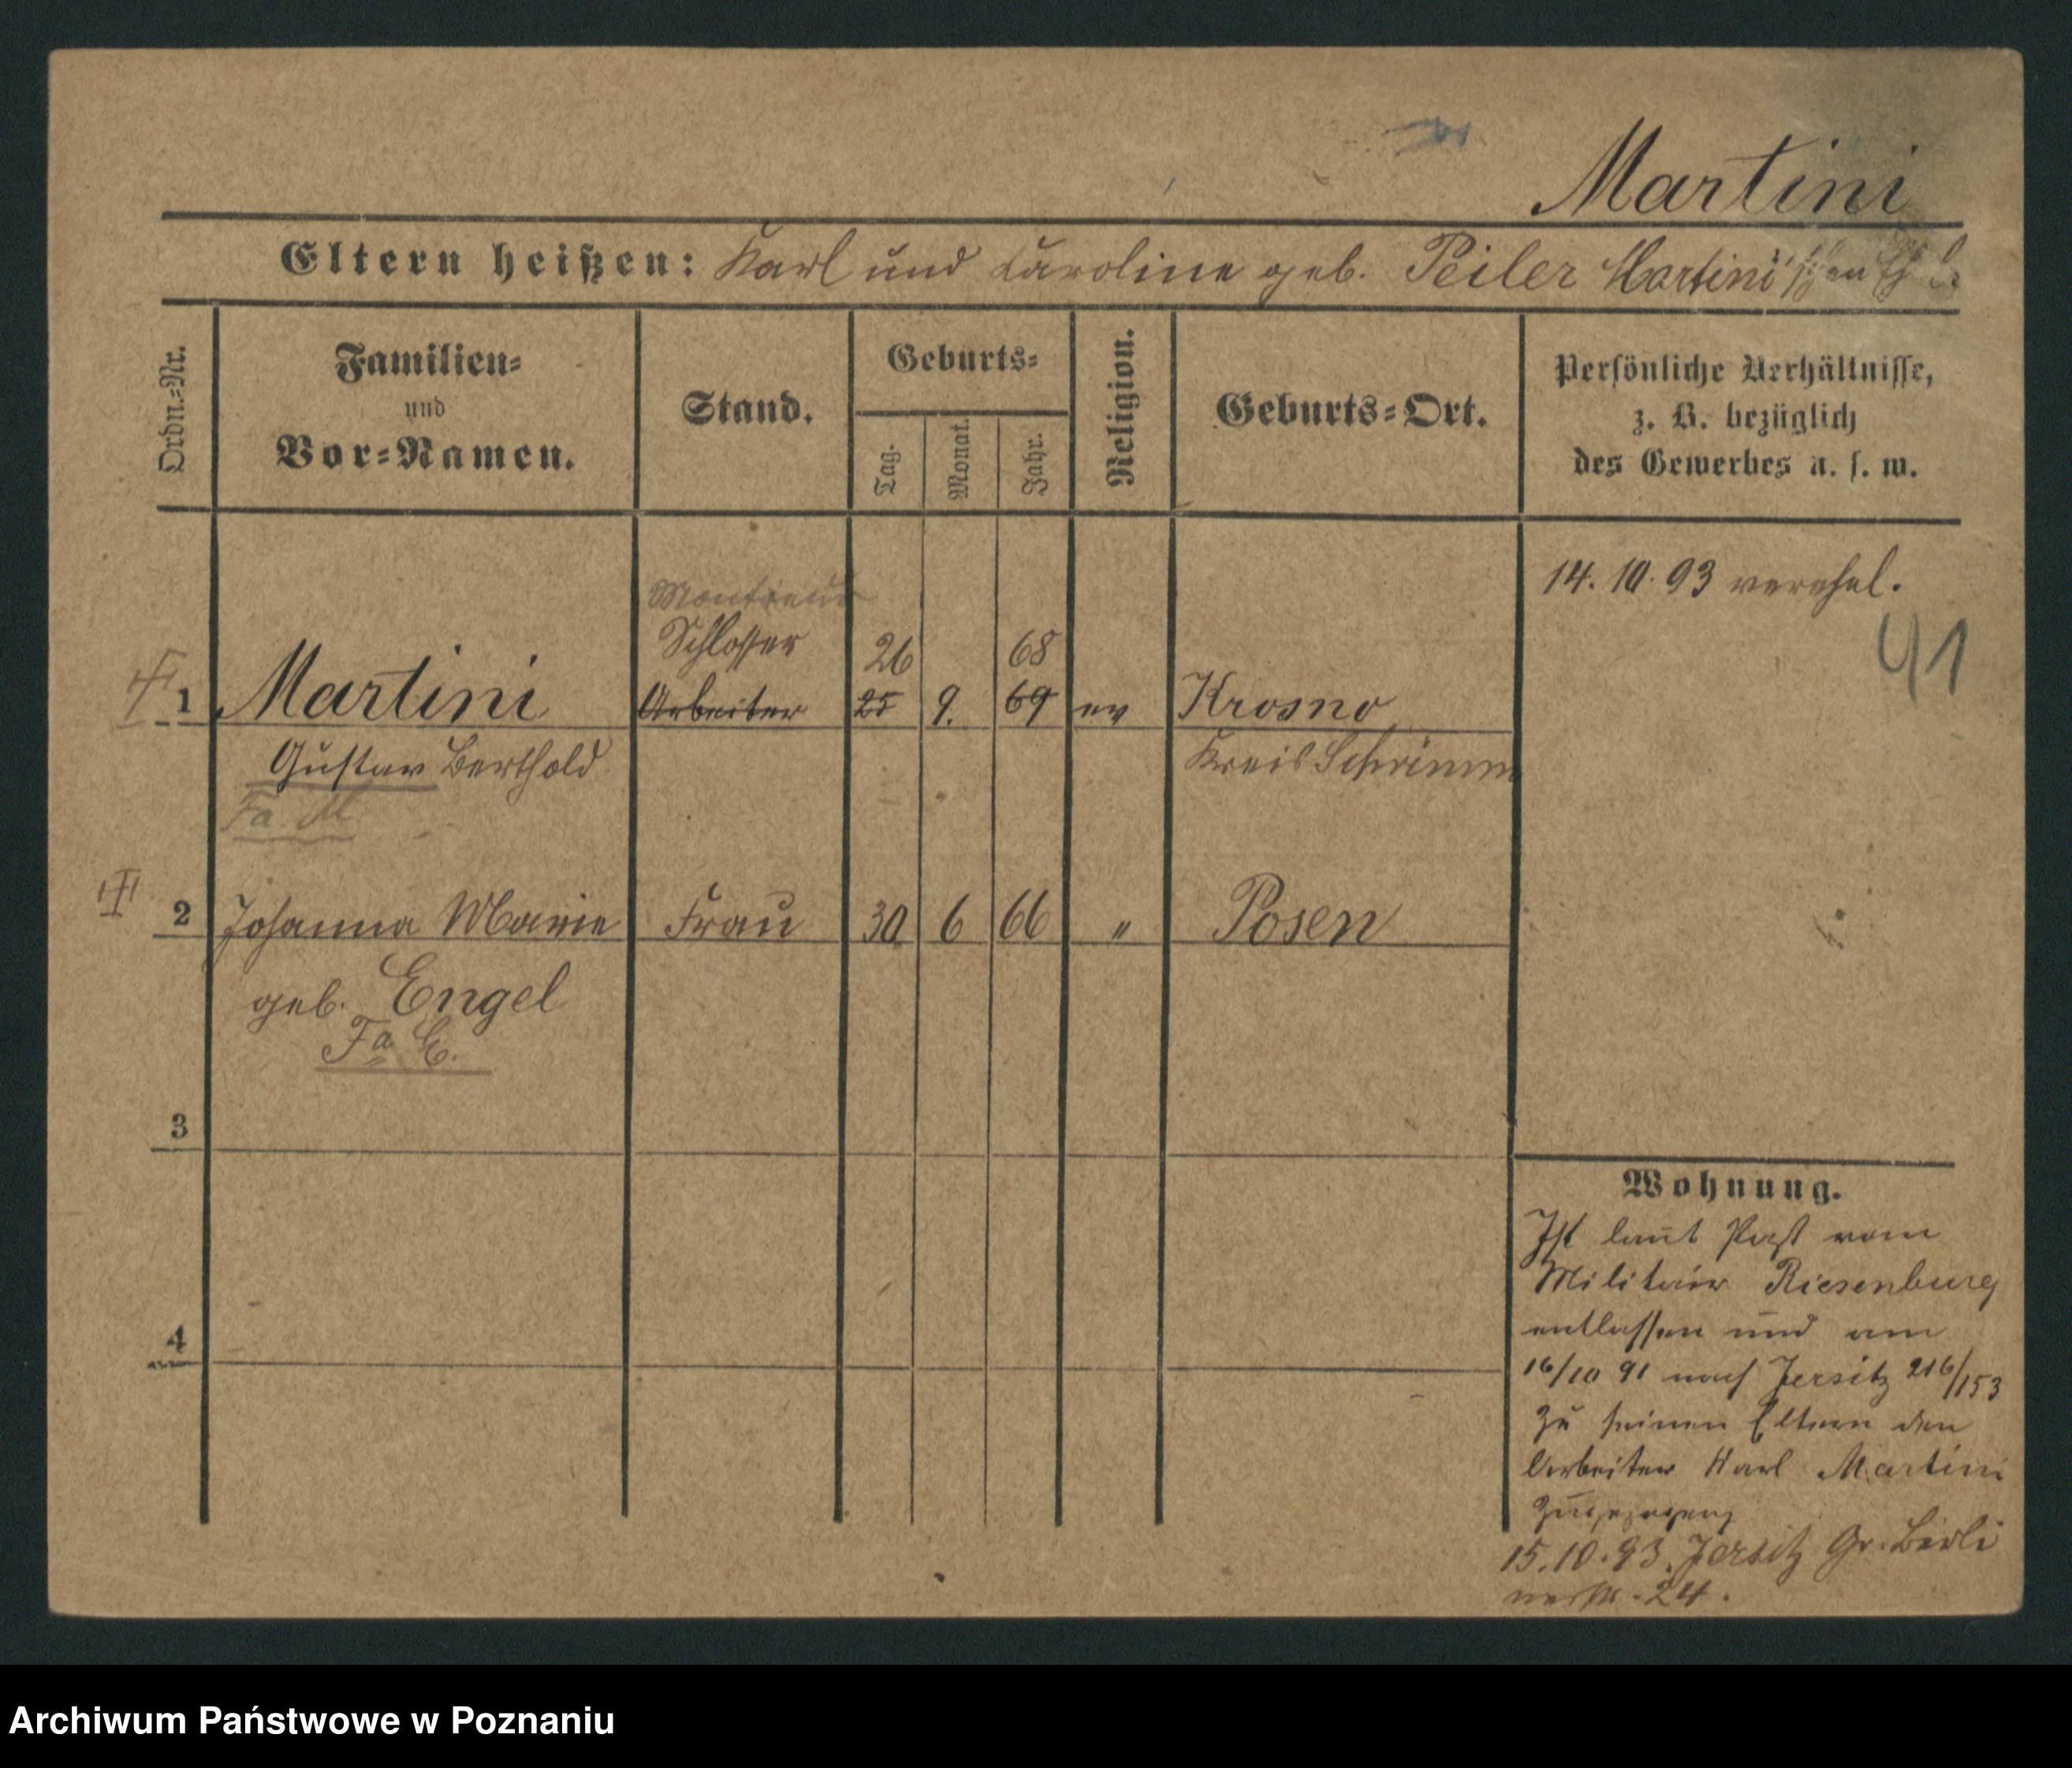 Martini
Eltern heißen: Karl und Caroline geb. Peiler Martini'schen
Ordn.=Nr.
Familien=
und
Vor=Namen.
Stand.
Geburts=
Tag.
Monat.
Jahr.
Religion.
Geburts=Ort.
Persönliche Verhältnisse,
z. B. bezüglich
des Gewerbes u. s. w.
14. 10. 93 verehel.
41
Monteur
Schlosser
26 68
1 Martini Arbeiter 25 9. 69 ev Krosno
Gustav Berthold Kreis Schrimm
Fa. M
2 Johanna Marie Frau 30 6 66 " Posen
geb. Engel
Fa E.
3
4
Wohnung.
Ist laut Paß vom
Militair Riesenburg
entlassen und am
16/10 91 nach Jersitz 216/153
zu seinen Eltern den
Arbeiter Karl Martini
zugezogen
15.10.93. Jersitz Gr. Berli
nerstr. 24.
Archiwum Państwowe w Poznaniu